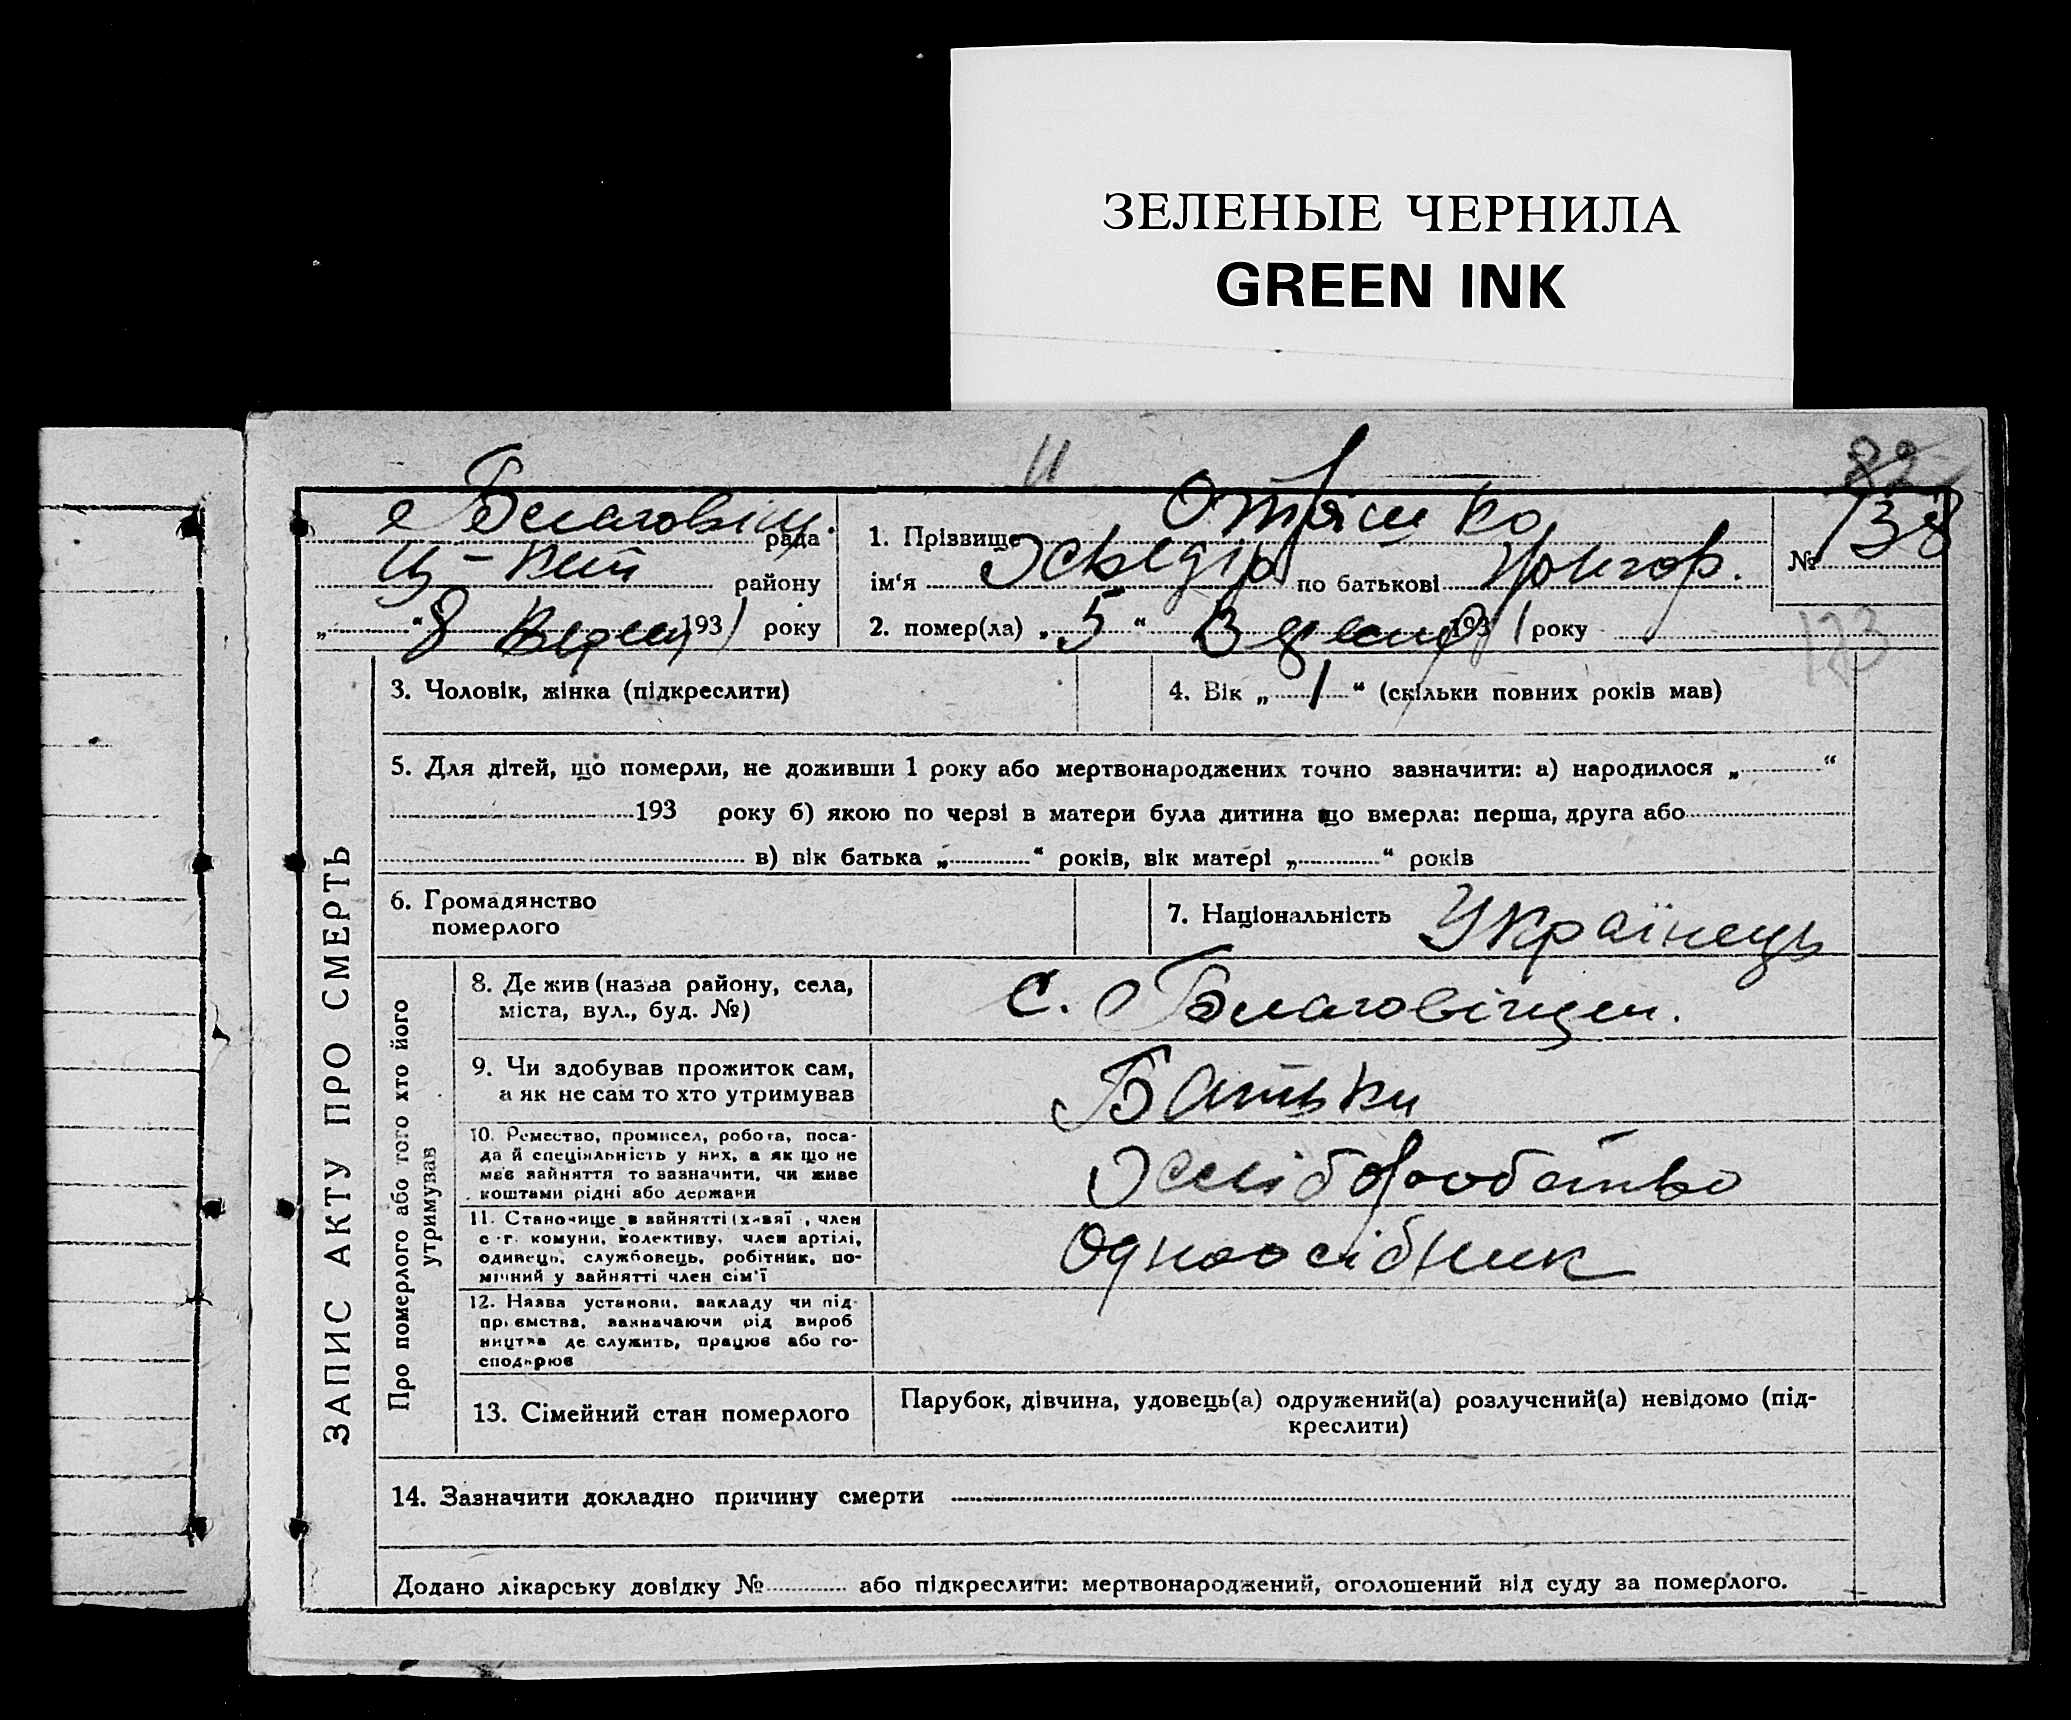 ЗЕЛЕНЫЕ ЧЕРНИЛА
GREEN INK
11
82
Благовіщ. рада
Ц-Кут району
„ “ 8 Вересн 1931 року
1. Прізвище
ім‘я по батькові
2. помер(ла) „ 5 “ Вересн 1931 року
№ 138
123
ЗАПИС АКТУ ПРО СМЕРТЬ
3. Чоловік, жінка (підкреслити)
4. Вік „ 1 “ (скільки повних років мав)
5. Для дітей, що померли, не доживши 1 року або мертвонароджених точно зазначити: а) народилося „ “
193 року б) якою по черзі в матери була дитина що вмерла: перша, друга або
в) вік батька „ “ років, вік матері „ “ років
6. Громадянство
померлого
7. Національність Українець
Про померлого або того хто його
утримував
8. Де жив (назва району, села,
міста, вул., буд. №)
С. Благовіщен.
9. Чи здобував прожиток сам,
а як не сам то хто утримував
Батьки
10. Ремество, промисел, робота, поса-
да й спеціяльність у них, а як що не
мав зайняття то зазначити, чи живе
коштами рідні або держави
Хліборобство
11. Становище в зайнятті (хазяї, член
с.-г. комуни, колективу, член артілі,
одинець, службовець, робітник, по-
мічний у зайнятті член сім‘ї
Одноосібник
12. Назва установи, закладу чи під-
приємства, зазначаючи рід вироб
ництва де служить, працює або го-
сподарює
13. Сімейний стан померлого
Парубок, дівчина, удовець(а) одружений(а) розлучений(а) невідомо (під-
креслити)
14. Зазначити докладно причину смерти
Додано лікарську довідку № або підкреслити: мертвонароджений, оголошений від суду за померлого.